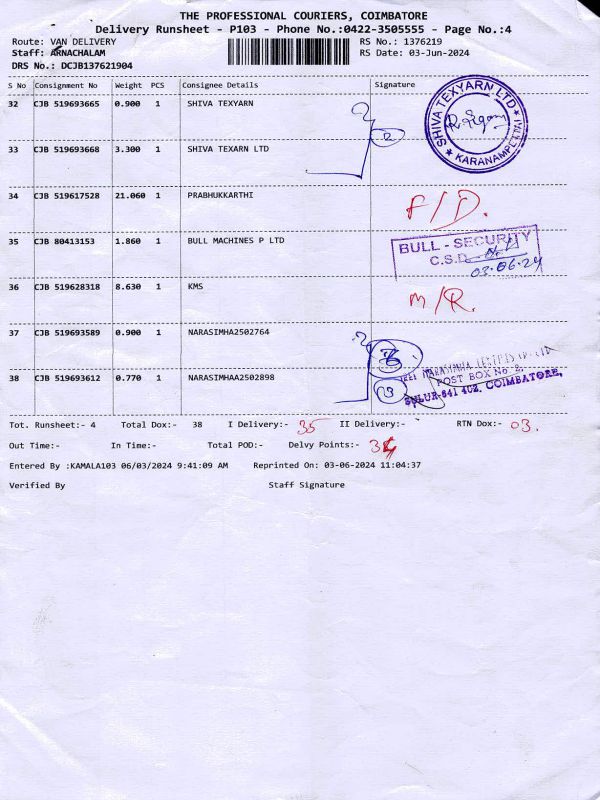 THE PROFESSIONAL COURIERS, COIMBATORE
Delivery Runsheet - P103 - Phone No.:0422-3505555 - Page No.:4
Route: VAN DELIVERY RS No.: 1376219
Staff: ARNACHALAM RS Date: 03-Jun-2024
DRS No.: DCJB137621904
S No Consignment No Weight PCS Consignee Details Signature
32 CJB 519693665 0.900 1 SHIVA TEXYARN
SHIVA TEXYARN LTD
KARANAMPETTAI
33 CJB 519693668 3.300 1 SHIVA TEXARN LTD
34 CJB 519617528 21.060 1 PRABHUKKARTHI F/D.
35 CJB 80413153 1.860 1 BULL MACHINES P LTD
BULL - SECURITY
C.S.D
03.06.24
36 CJB 519628318 8.630 1 KMS M/R.
37 CJB 519693589 0.900 1 NARASIMHA2502764
38 CJB 519693612 0.770 1 NARASIMHAA2502898
POST BOX No.
SULUR-641 402. COIMBATORE.
Tot. Runsheet:- 4 Total Dox:- 38 I Delivery:- 35 II Delivery:- RTN Dox:- 03.
Out Time:- In Time:- Total POD:- Delvy Points:-
Entered By :KAMALA103 06/03/2024 9:41:09 AM Reprinted On: 03-06-2024 11:04:37
Verified By Staff Signature